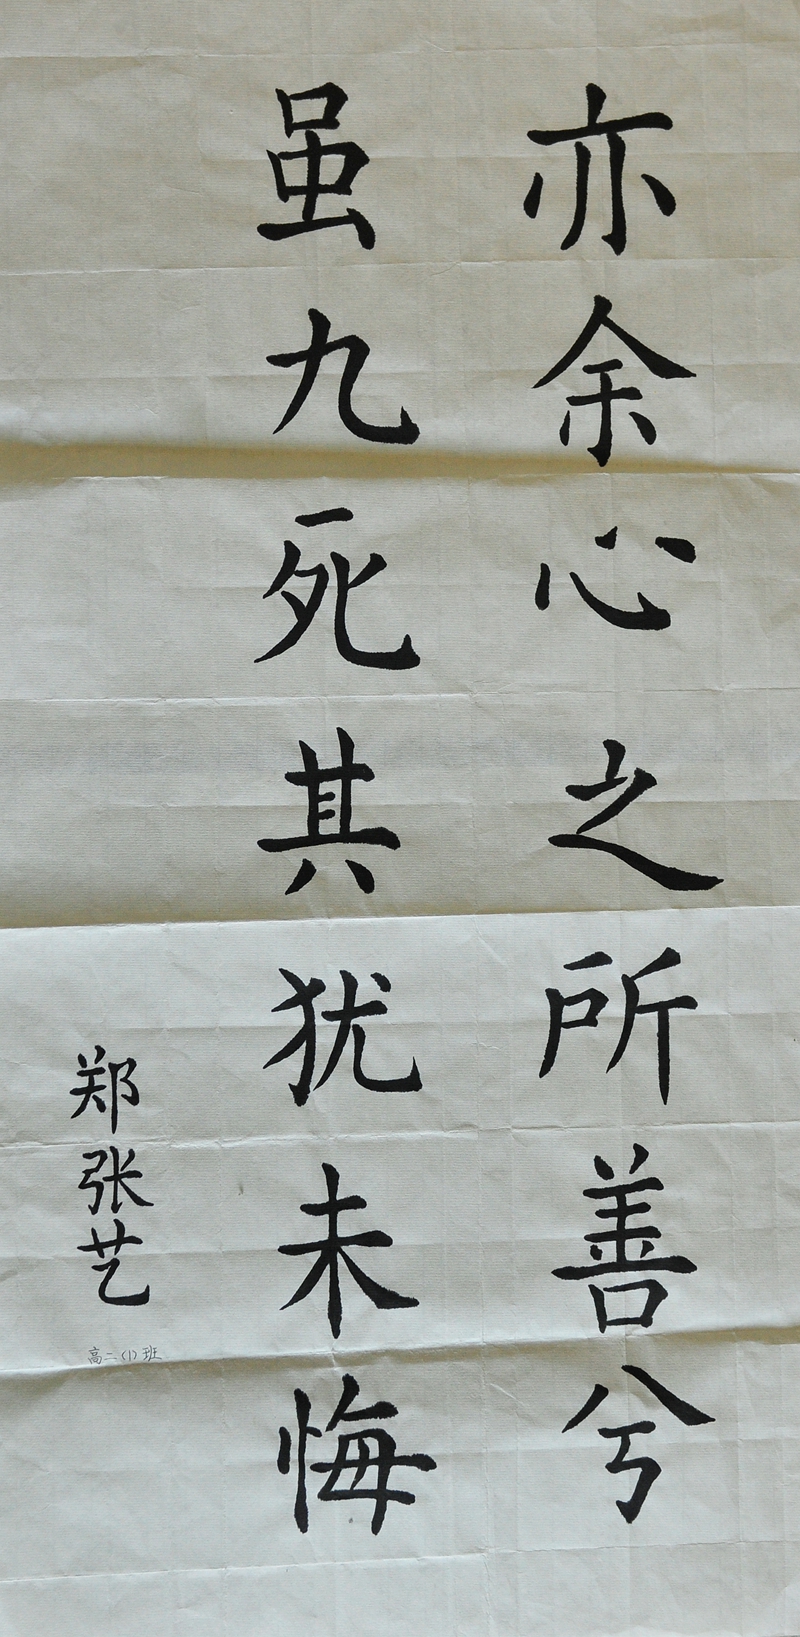 亦余心之所善兮
虽九死其犹未悔
郑张艺
高二(1)班